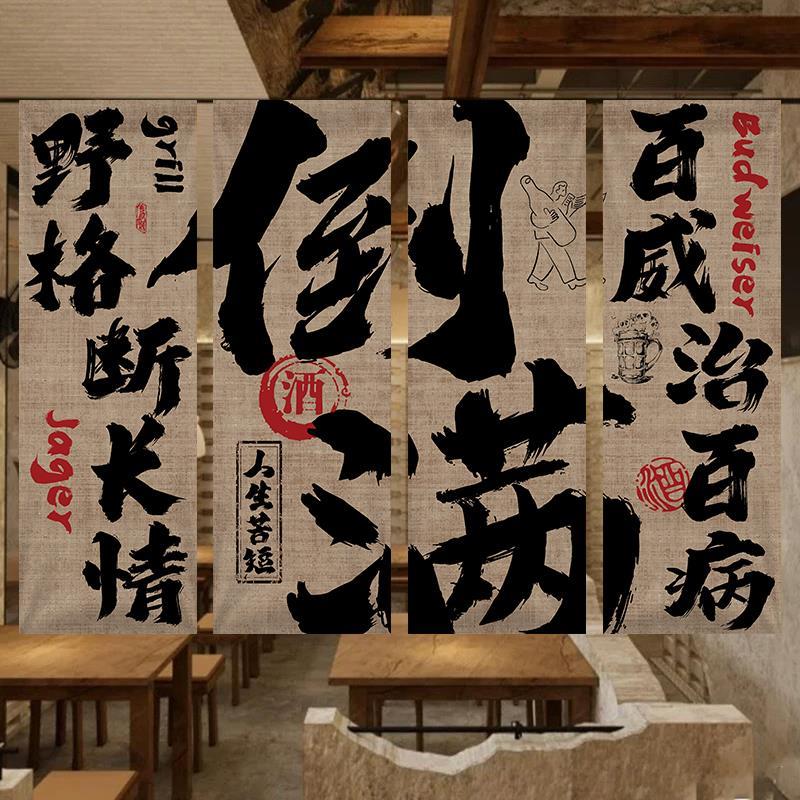 野格断长情
grill
Jager
倒满
酒
人生苦短
百威治百病
Budweiser
酒